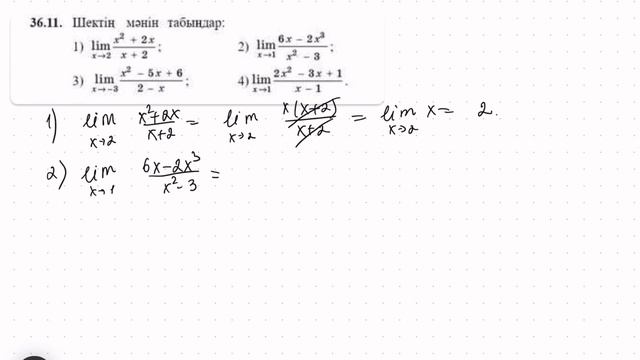 36.11. Шектің мәнін табыңдар:
1) lim x→2 (x² + 2x)/(x + 2); 2) lim x→1 (6x − 2x³)/(x² − 3);
3) lim x→−3 (x² − 5x + 6)/(2 − x); 4) lim x→1 (2x² − 3x + 1)/(x − 1).
1) lim x→2 (x²+2x)/(x+2) = lim x→2 x(x+2)/(x+2) = lim x→2 x = 2.
2) lim x→1 (6x−2x³)/(x²−3) =